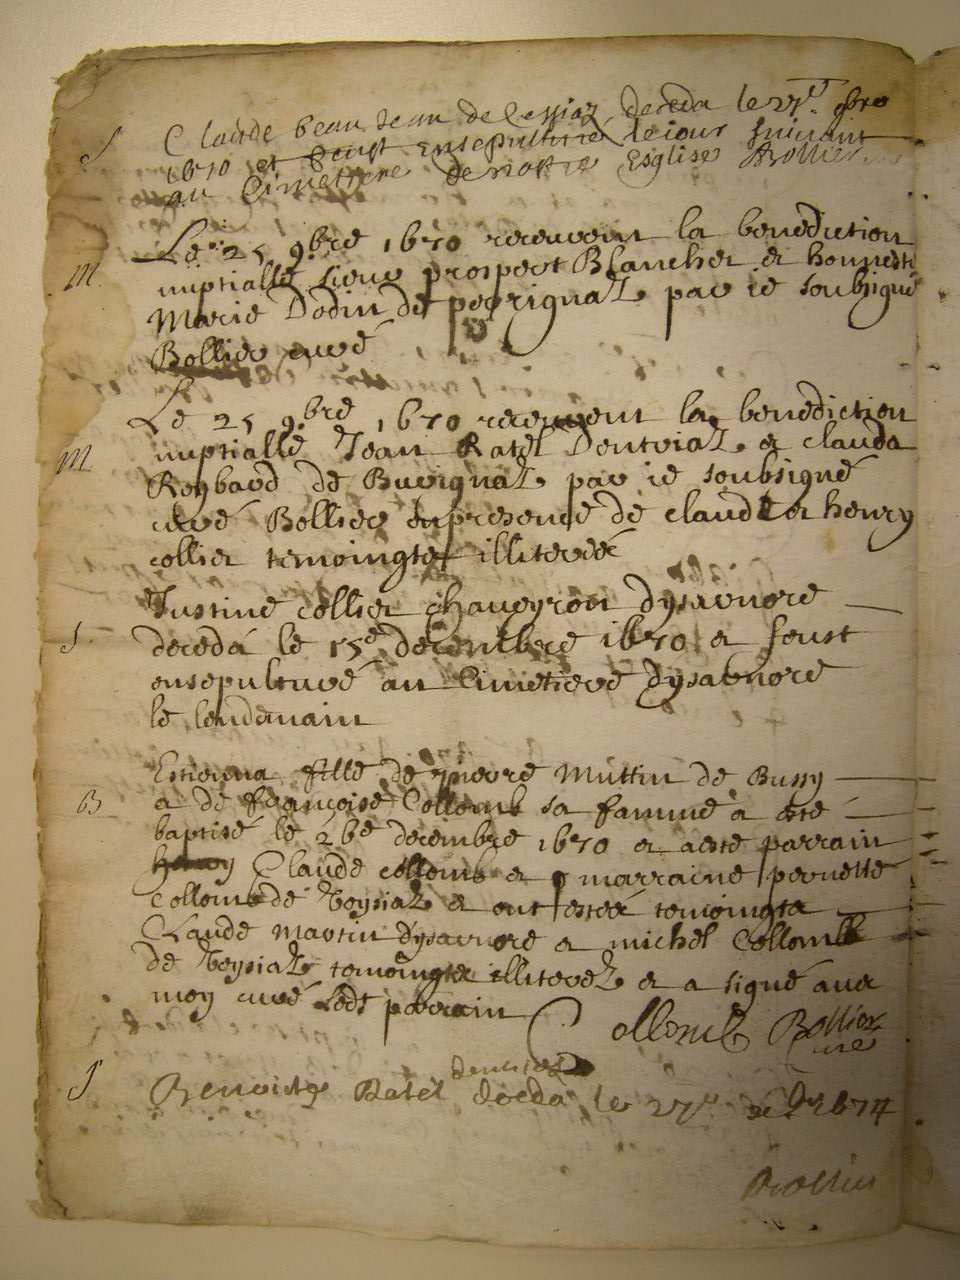 S Claude beau Jean de Cessiaz deceda le 27e 9bre
1670 et feust ensepulturé le jour suivant
au Cimettiere de nostre Esglise Bollier
Le 25 9bre 1670 receuvent la benediction
M nuptialle sieur prospert Blanchet et honneste
Marie Dodin de perrignaz par ie soubsigné
Bollier curé
Le 25 9bre 1670 receuvent la benediction
M nuptialle Jean Ratel Dentriaz et clauda
Reybaud de Buvignaz par ie soubsigné
curé Bollier en presence de claude et henry
collier temoingtz illiterréz
Justine collier chaveyron dysernore
S deceda le 15e decembre 1670 et feust
ensepulturé au Cimetiere dysernore
le lendemain
Estienna fille de pierre Muttin de Bussy
B et de françoise Collomb sa famme a esté
baptisé le 26e decembre 1670 et a esté parrain
Claude collomb et marraine pernette
Collomb de Veysiaz et ont estéz temoingtz
Claude Martin dysernore et michel Collomb
de Veysiaz temoingtz illiterez et a signé avec
moy curé ledt parrain Collomb Bollier
curé
S Benoiste Ratel dentriaz deceda le 27e de
Bollier